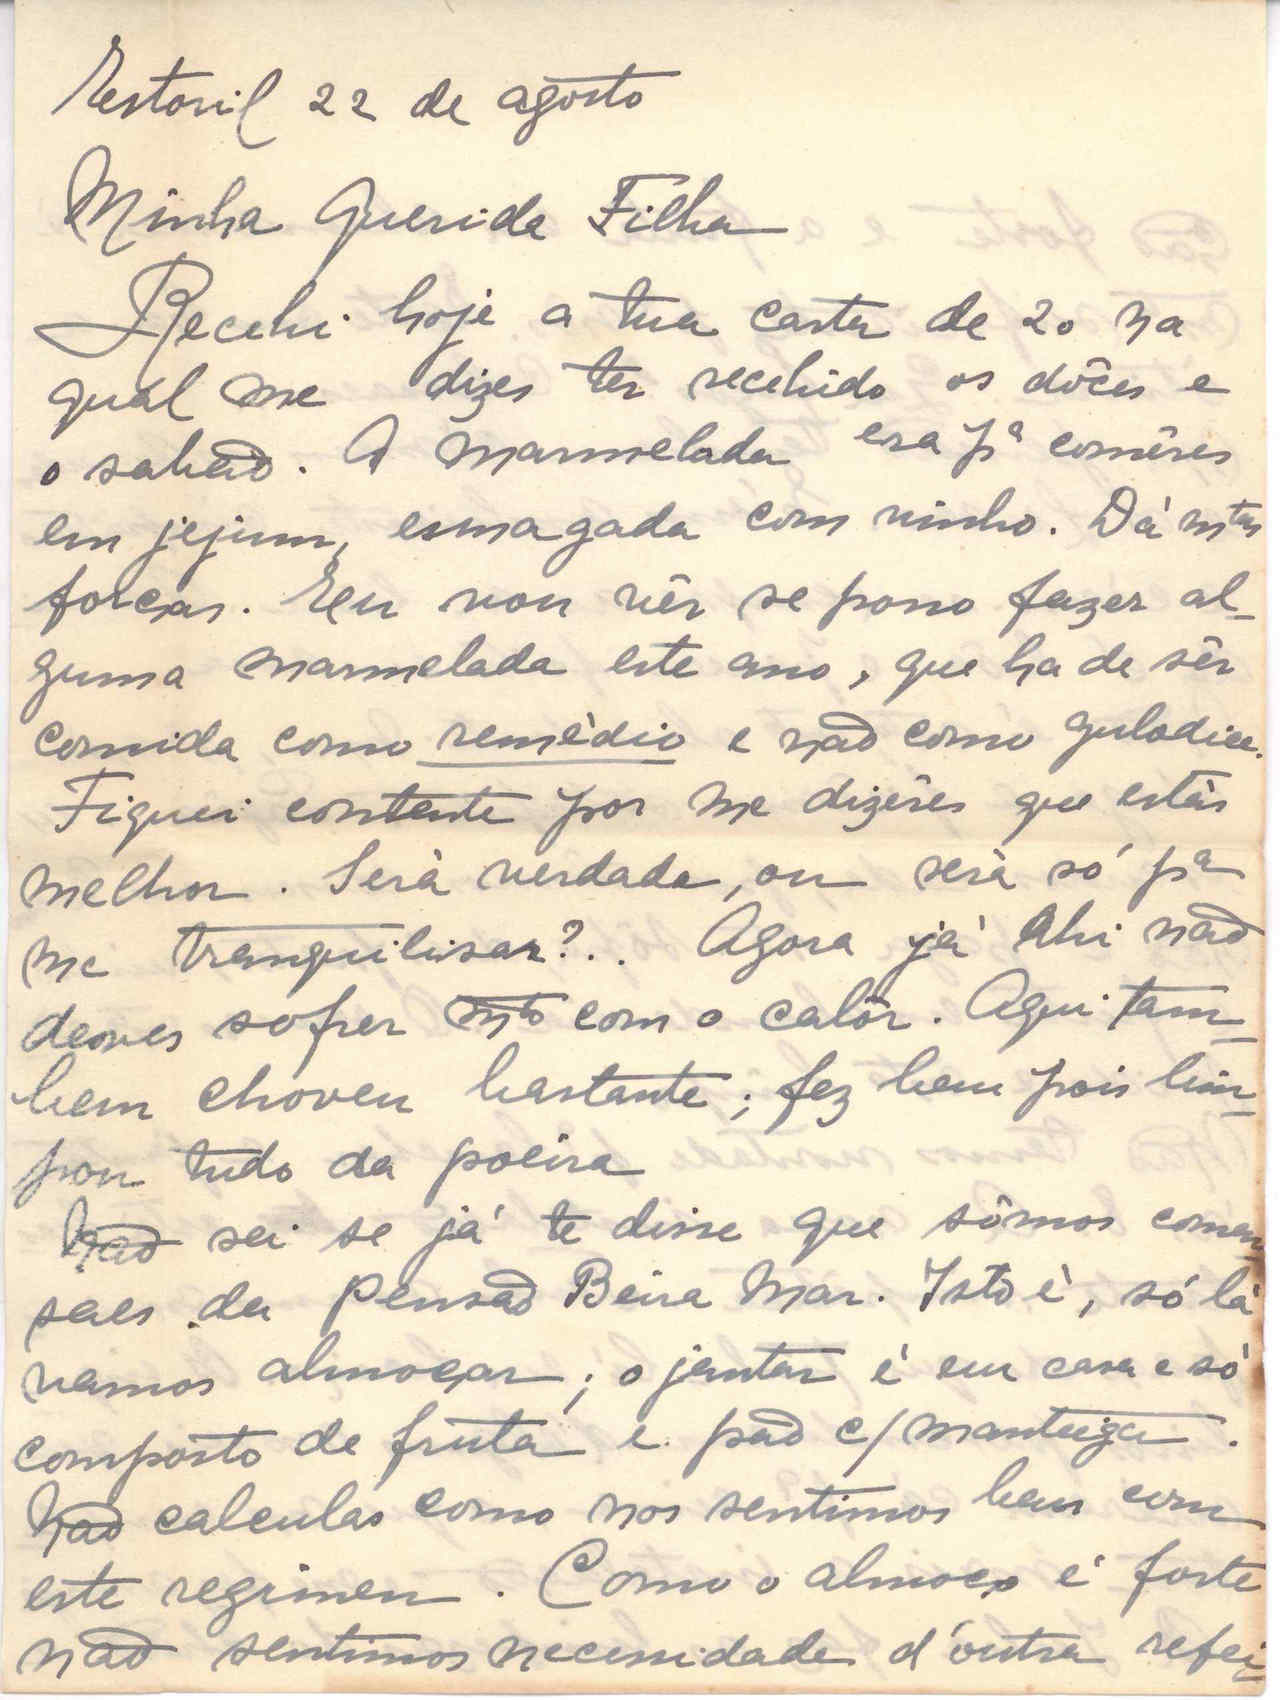 Estoril 22 de agosto
Minha Querida Filha
Recebi hoje a tua carta de 20 na
qual me dizes ter recebido os dôces e
o sabão. A marmelada era pª comêres
em jejum, esmagada com vinho. Dá mtas
forças. Eu vou vêr se posso fazer al-
guma marmelada este ano, que ha de sêr
comida como remèdio e não como gulodice.
Fiquei contente por me dizêres que estás
melhor. Serà verdade, ou serà só pª
me tranquilisar?.. Agora já ahi não
deves sofrer mto com o calôr. Aqui tam-
bem choveu bastante; fez bem pois lim-
pou tudo da poeira
Não sei se já te disse que sômos comen-
saes da Pensão Beira Mar. Isto é, só lá
vamos almoçar; o jantar é em casa e só
composto de fruta e pão c/ manteiga.
Não calculas como nos sentimos bem com
este regimen. Como o almoço é forte
não sentimos necessidade d'outra refei-